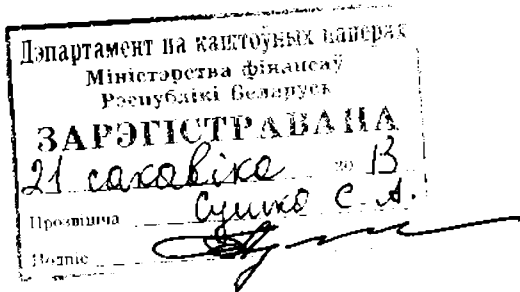 Дэпартамент па каштоўных паперах
Міністэрства фінансаў
Рэспублікі Беларусь
ЗАРЭГІСТРАВАНА
21 сакавіка 20 13
Прозвішча Сушко С. А.
Подпіс